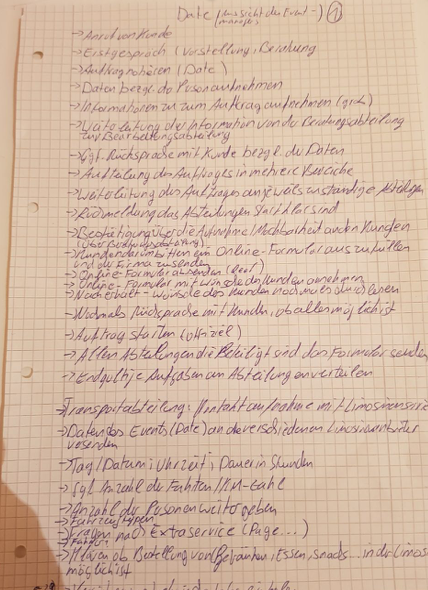 Date (aus sicht des Event-manager) 1
→ Anruf von Kunde
→ Erstgespräch (Vorstellung, Beratung
→ Auftrag notieren (Date)
→ Daten bezgl. der Person aufnehmen
→ Informationen zum Auftrag aufnehmen
→ Weiterleitung der Information von der Beratungsabteilung
zur Bearbeitungsabteilung
→ Ggf. Rücksprache mit Kunde bezgl. der Daten
→ Aufteilung des Auftrages in mehrere Bereiche
→ Weiterleitung des Auftrages an jeweils zuständige Abteilungen
→ Rückmeldung das Abteilungen startklar sind
→ Bestätigung über die Aufnahme/Machbarkeit an den Kunden
→ Kunden darum bitten ein Online-Formular auszufüllen
und der Firma zusenden
→ Online-Formular absenden
→ Online-Formular mit wünsche des Kunden annehmen
→ Wünsche des Kunden nochmals durchlesen
→ Nochmals Rücksprache mit Kunden, ob alles möglich ist
→ Auftrag starten (offiziel)
→ Allen Abteilungen die Beteiligt sind das Formular senden
→ Endgültige Aufgaben an Abteilungen verteilen
→ Transportabteilung: Kontaktaufnahme mit Limosinenservice
→ Daten des Events (Date) an die verschiedenen Limosinenanbieter
versenden
→ Tag/Datum, Uhrzeit, Dauer in Stunden
→ Ggf. Anzahl der Fahrten/Km-zahl
→ Anzahl der Personen weitergeben
→ Fahrzeugtypen
→ Fragen nach Extraservice (Page...)
→ Klären ob Bestellung von Getränken, Essen, Snacks... in der Limosine
möglich ist